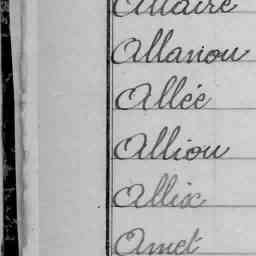 Allaire
Allanou
Allée
Alliou
Allix
Amet